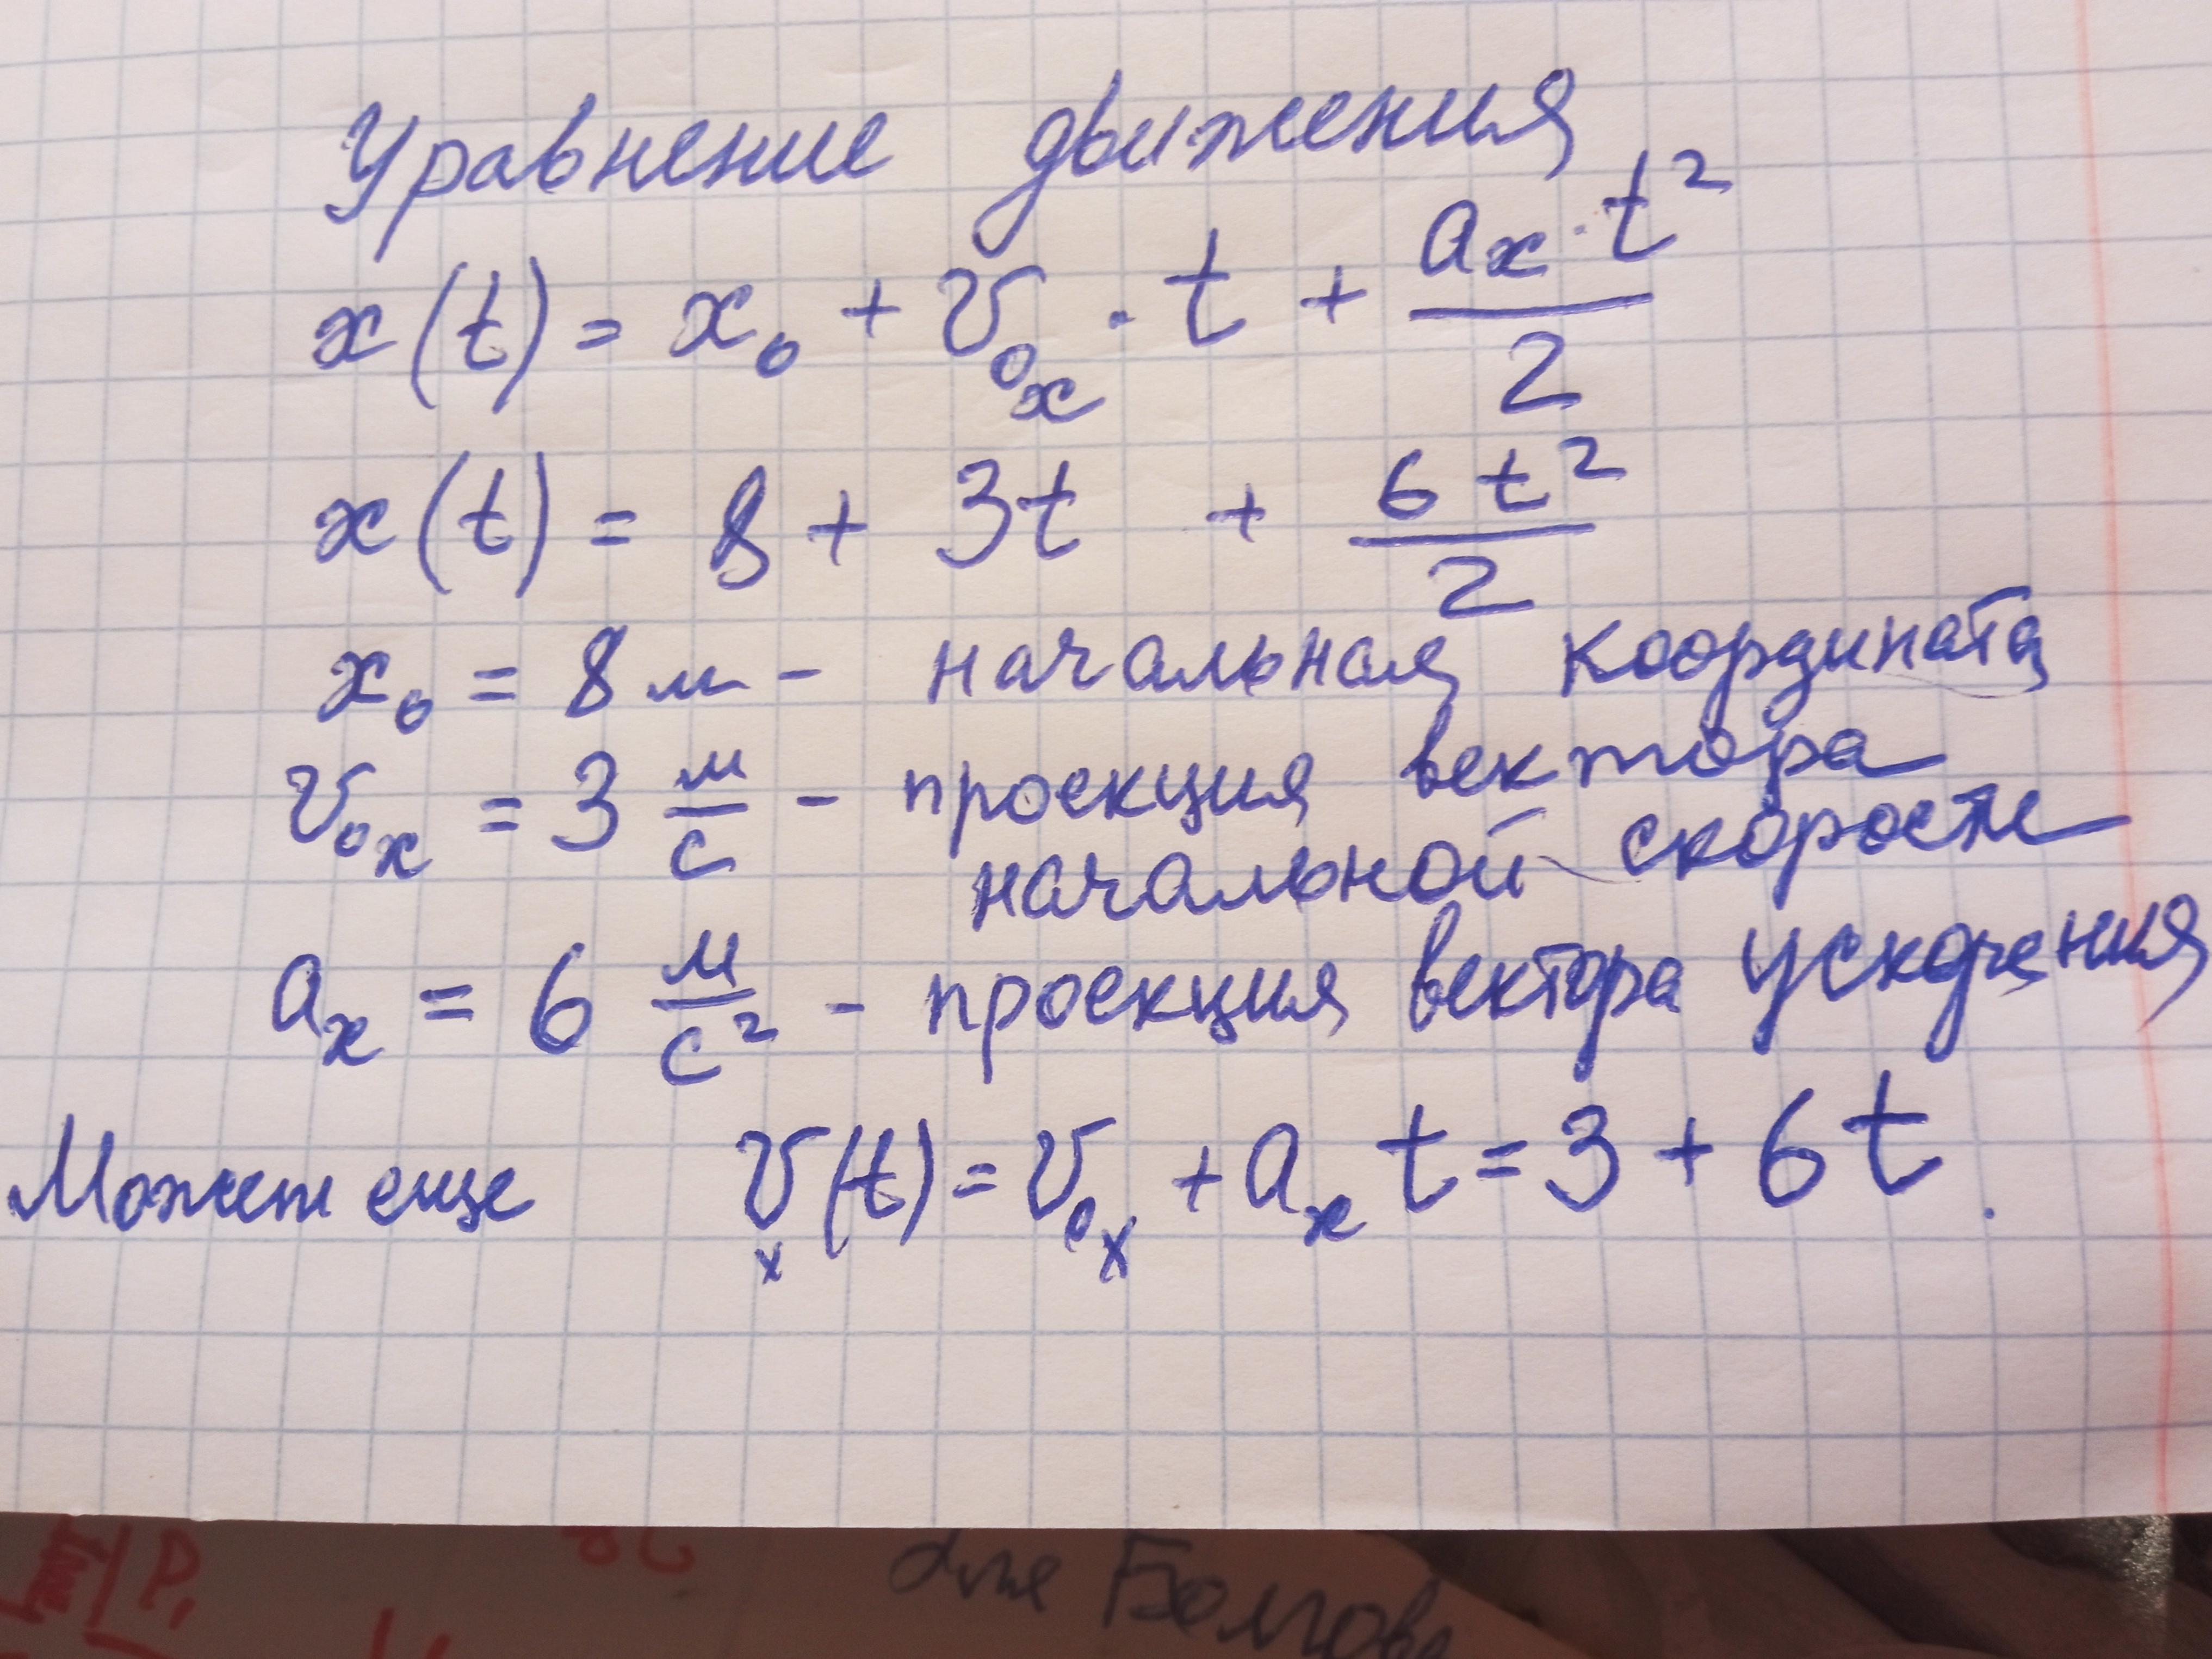 Уравнение движения
x(t) = x₀ + v₀ₓ · t + aₓ · t² / 2
x(t) = 8 + 3t + 6 t² / 2
x₀ = 8 м - начальная координата
v₀ₓ = 3 м/с - проекция вектора
начальной скорости
aₓ = 6 м/с² - проекция вектора ускорения
Может еще vₓ(t) = v₀ₓ + aₓ t = 3 + 6 t.
P₁
для